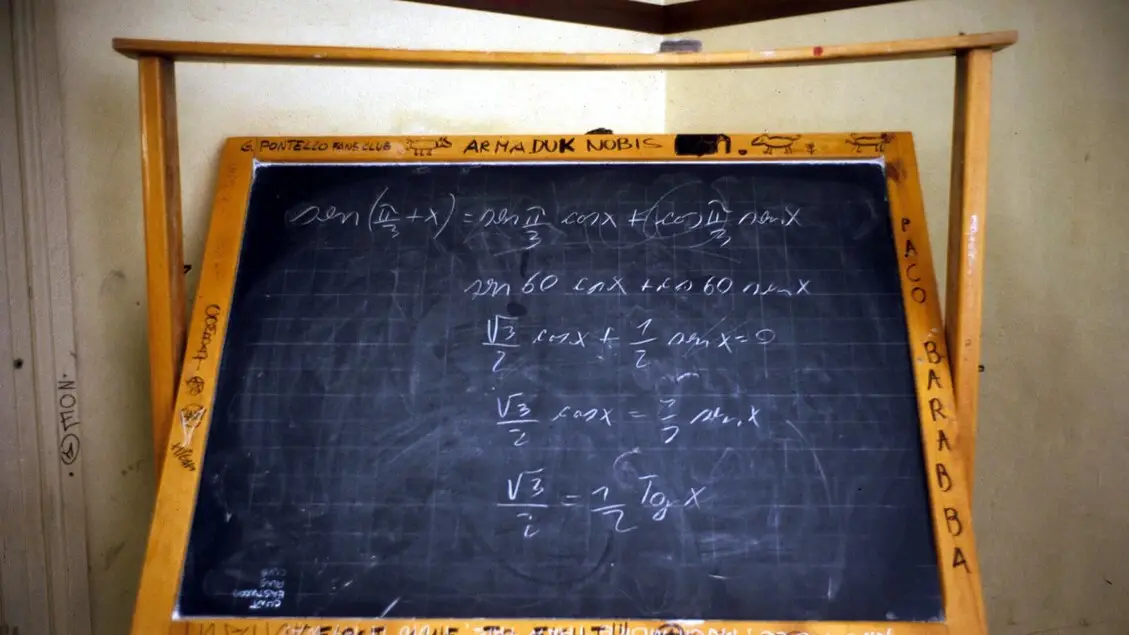 G. PONTELLO FANS CLUB
ARMADUK NOBIS
sen(π/3 + x) = sen π/3 cosx + cos π/3 senx
sen 60 cosx + cos 60 senx
√3/2 cosx + 1/2 senx = 0
√3/2 cosx = 1/2 senx
√3/2 = 1/2 Tg x
PACO BARABBA
NOM
CLINT
EASTWOOD
FANS
CLUB